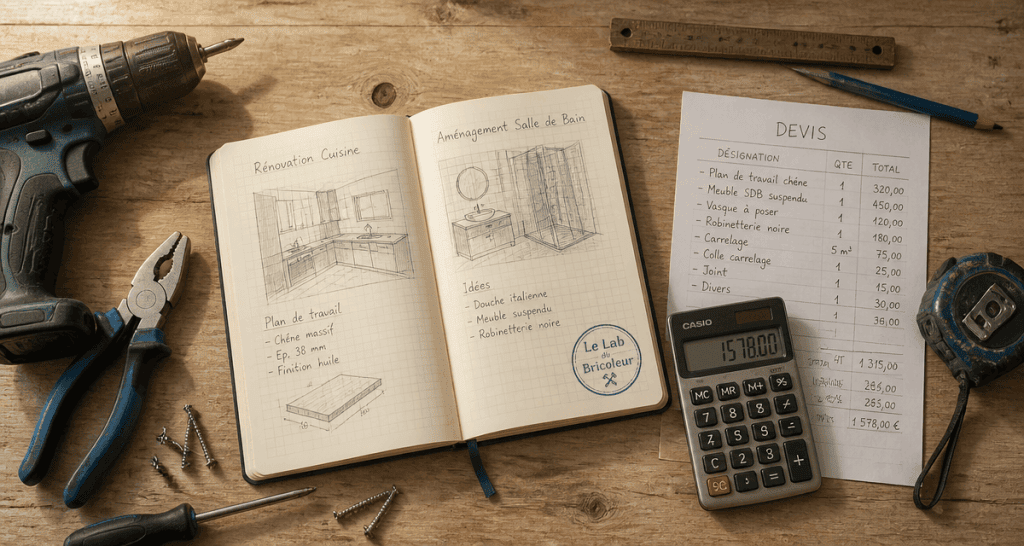 Rénovation Cuisine
Plan de travail
- Chêne massif
- Ep. 38 mm
- Finition huile
Aménagement Salle de Bain
Idées
- Douche italienne
- Meuble suspendu
- Robinetterie noire
Le Lab
du
Bricoleur
DEVIS
DÉSIGNATION QTE TOTAL
- Plan de travail chêne 1 320,00
- Meuble SDB suspendu 1 450,00
- Vasque à poser 1 120,00
- Robinetterie noire 1 180,00
- Carrelage 5 m² 75,00
- Colle carrelage 1 25,00
- Joint 1 15,00
- Divers 1 30,00
1 36,00
HT 1 315,00
265,00
1 578,00 €
CASIO
1578.00
MC MR M+ %
7 8 8
5 5
C 2 3 +